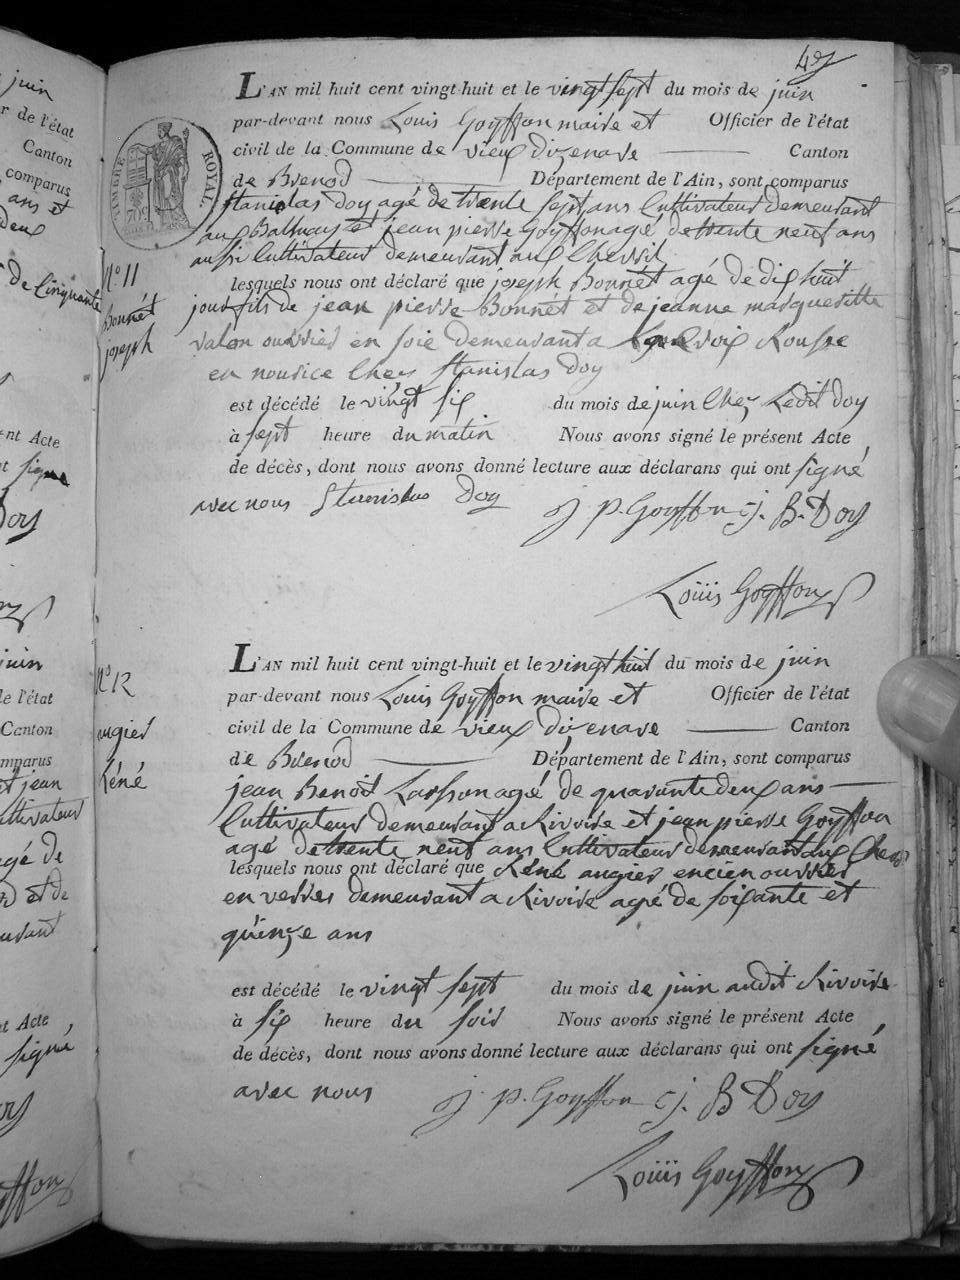 juin
r de l'état
Canton
comparus
ans et
deux
de Cinquante
ent Acte
signé
Doy
juin
de l'état
Canton
mparus
jean
ultivateur
agé de
et de
eurant
t Acte
signé
TIMBRE ROYAL
L'AN mil huit cent vingt-huit et le vingt sept du mois de juin
par-devant nous Louis Goyffon maire et Officier de l'état
civil de la Commune de vieux dizenave Canton
de Brenod Département de l'Ain, sont comparus
stanislas doy agé de trente sept ans Cultivateur demeurant
aux Balmay et jean pierre Goyffon agé de trente neuf ans
aussi Cultivateur demeurant aux Chevril
N° 11
Bonnét
joseph
lesquels nous ont déclaré que joseph Bonnét agé de dix huit
jour fils de jean pierre Bonnét et de jeanne margueritte
valon ouvrier en soie demeurant a Croix Rousse
en nourice Chez Stanislas Doy
est décédé le vingt six du mois de juin Chez Ledit doy
à sept heure du matin Nous avons signé le présent Acte
de décès, dont nous avons donné lecture aux déclarans qui ont signé
avec nous Stanislas Doy j. p. Goyffon j. B. Doy
Louis Goyffon
N° 12
augier
Réné
L'AN mil huit cent vingt-huit et le vingt huit du mois de juin
par-devant nous Louis Goyffon maire et Officier de l'état
civil de la Commune de vieux dizenave Canton
de Brenod Département de l'Ain, sont comparus
jean Benoit Larsson agé de quarante deux ans
Cultivateur demeurant a Rivoire et jean pierre Goyffon
agé de trente neuf ans Cultivateur demeurant aux Chevril
lesquels nous ont déclaré que Réné augier encien ouvrier
en verres demeurant a Rivoire agé de soixante et
quinze ans
est décédé le vingt sept du mois de juin audit Rivoire
à six heure du soir Nous avons signé le présent Acte
de décès, dont nous avons donné lecture aux déclarans qui ont signé
avec nous j. p. Goyffon j. B Doy
Louis Goyffon